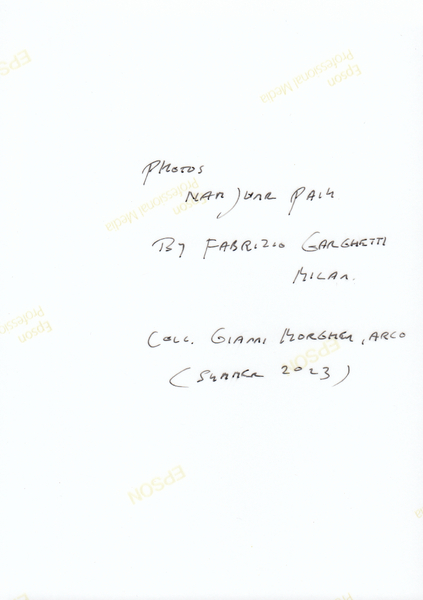 EPSON
Epson
Professional Media
PHOTOS
EPSON
Professional Media
NAM JUNE PAIK
BY FABRIZIO GARGHETTI
MILAN.
Epson
Professional
COLL. GIANNI MORGHEN, ARCO
EPSON
(SUMMER 2023)
EPSON